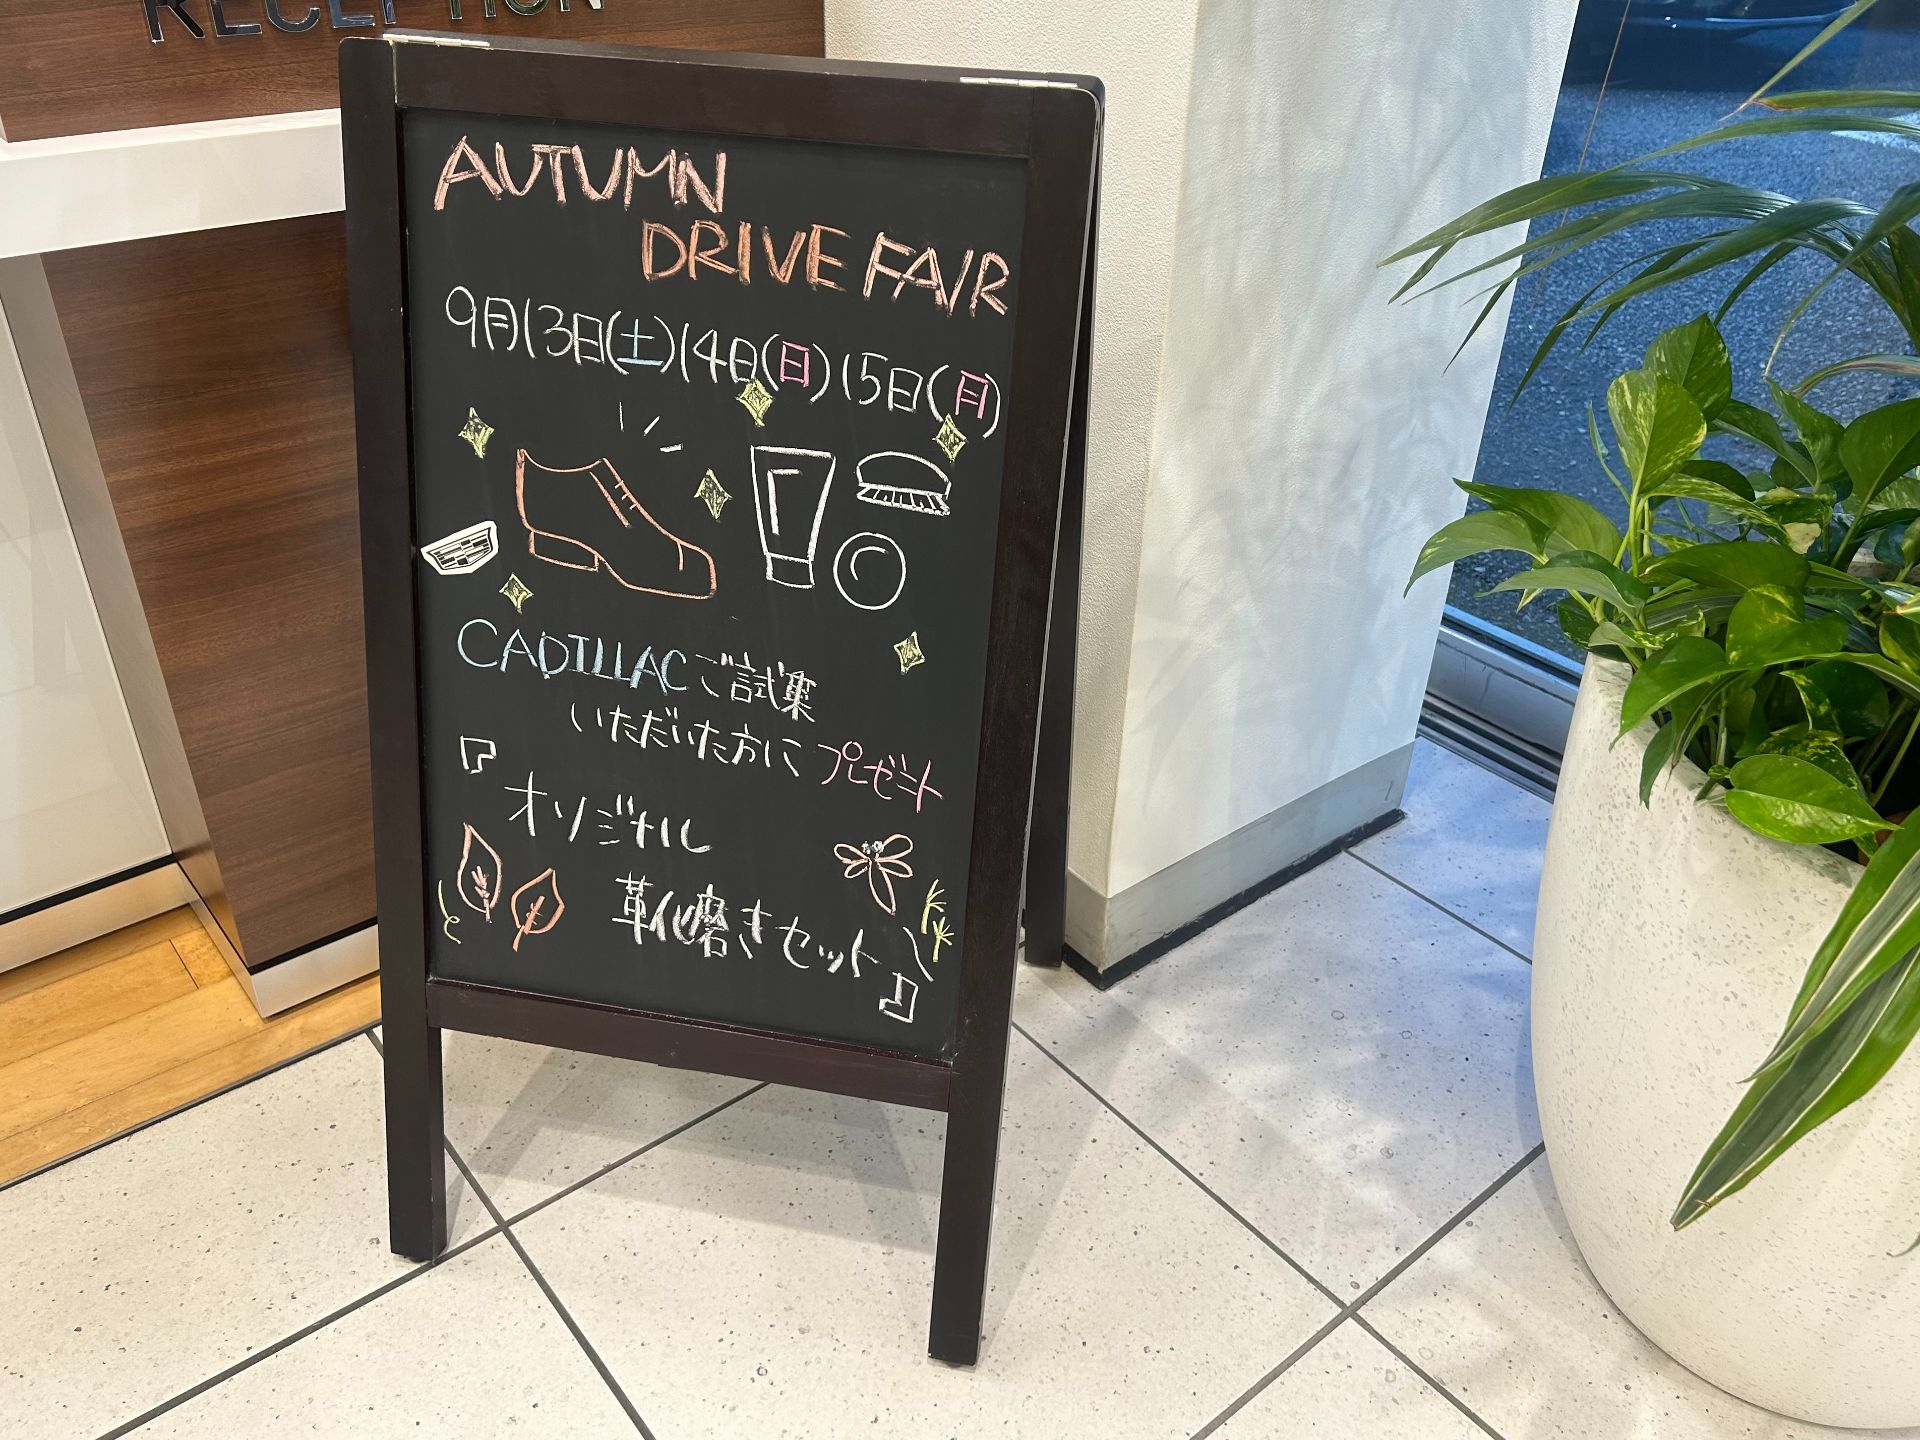 RECEPTION
AUTUMN
DRIVE FAIR
9月13日(土)14日(日)15日(月)
CADILLACご試乗
いただいた方にプレゼント
『オリジナル
革靴磨きセット』